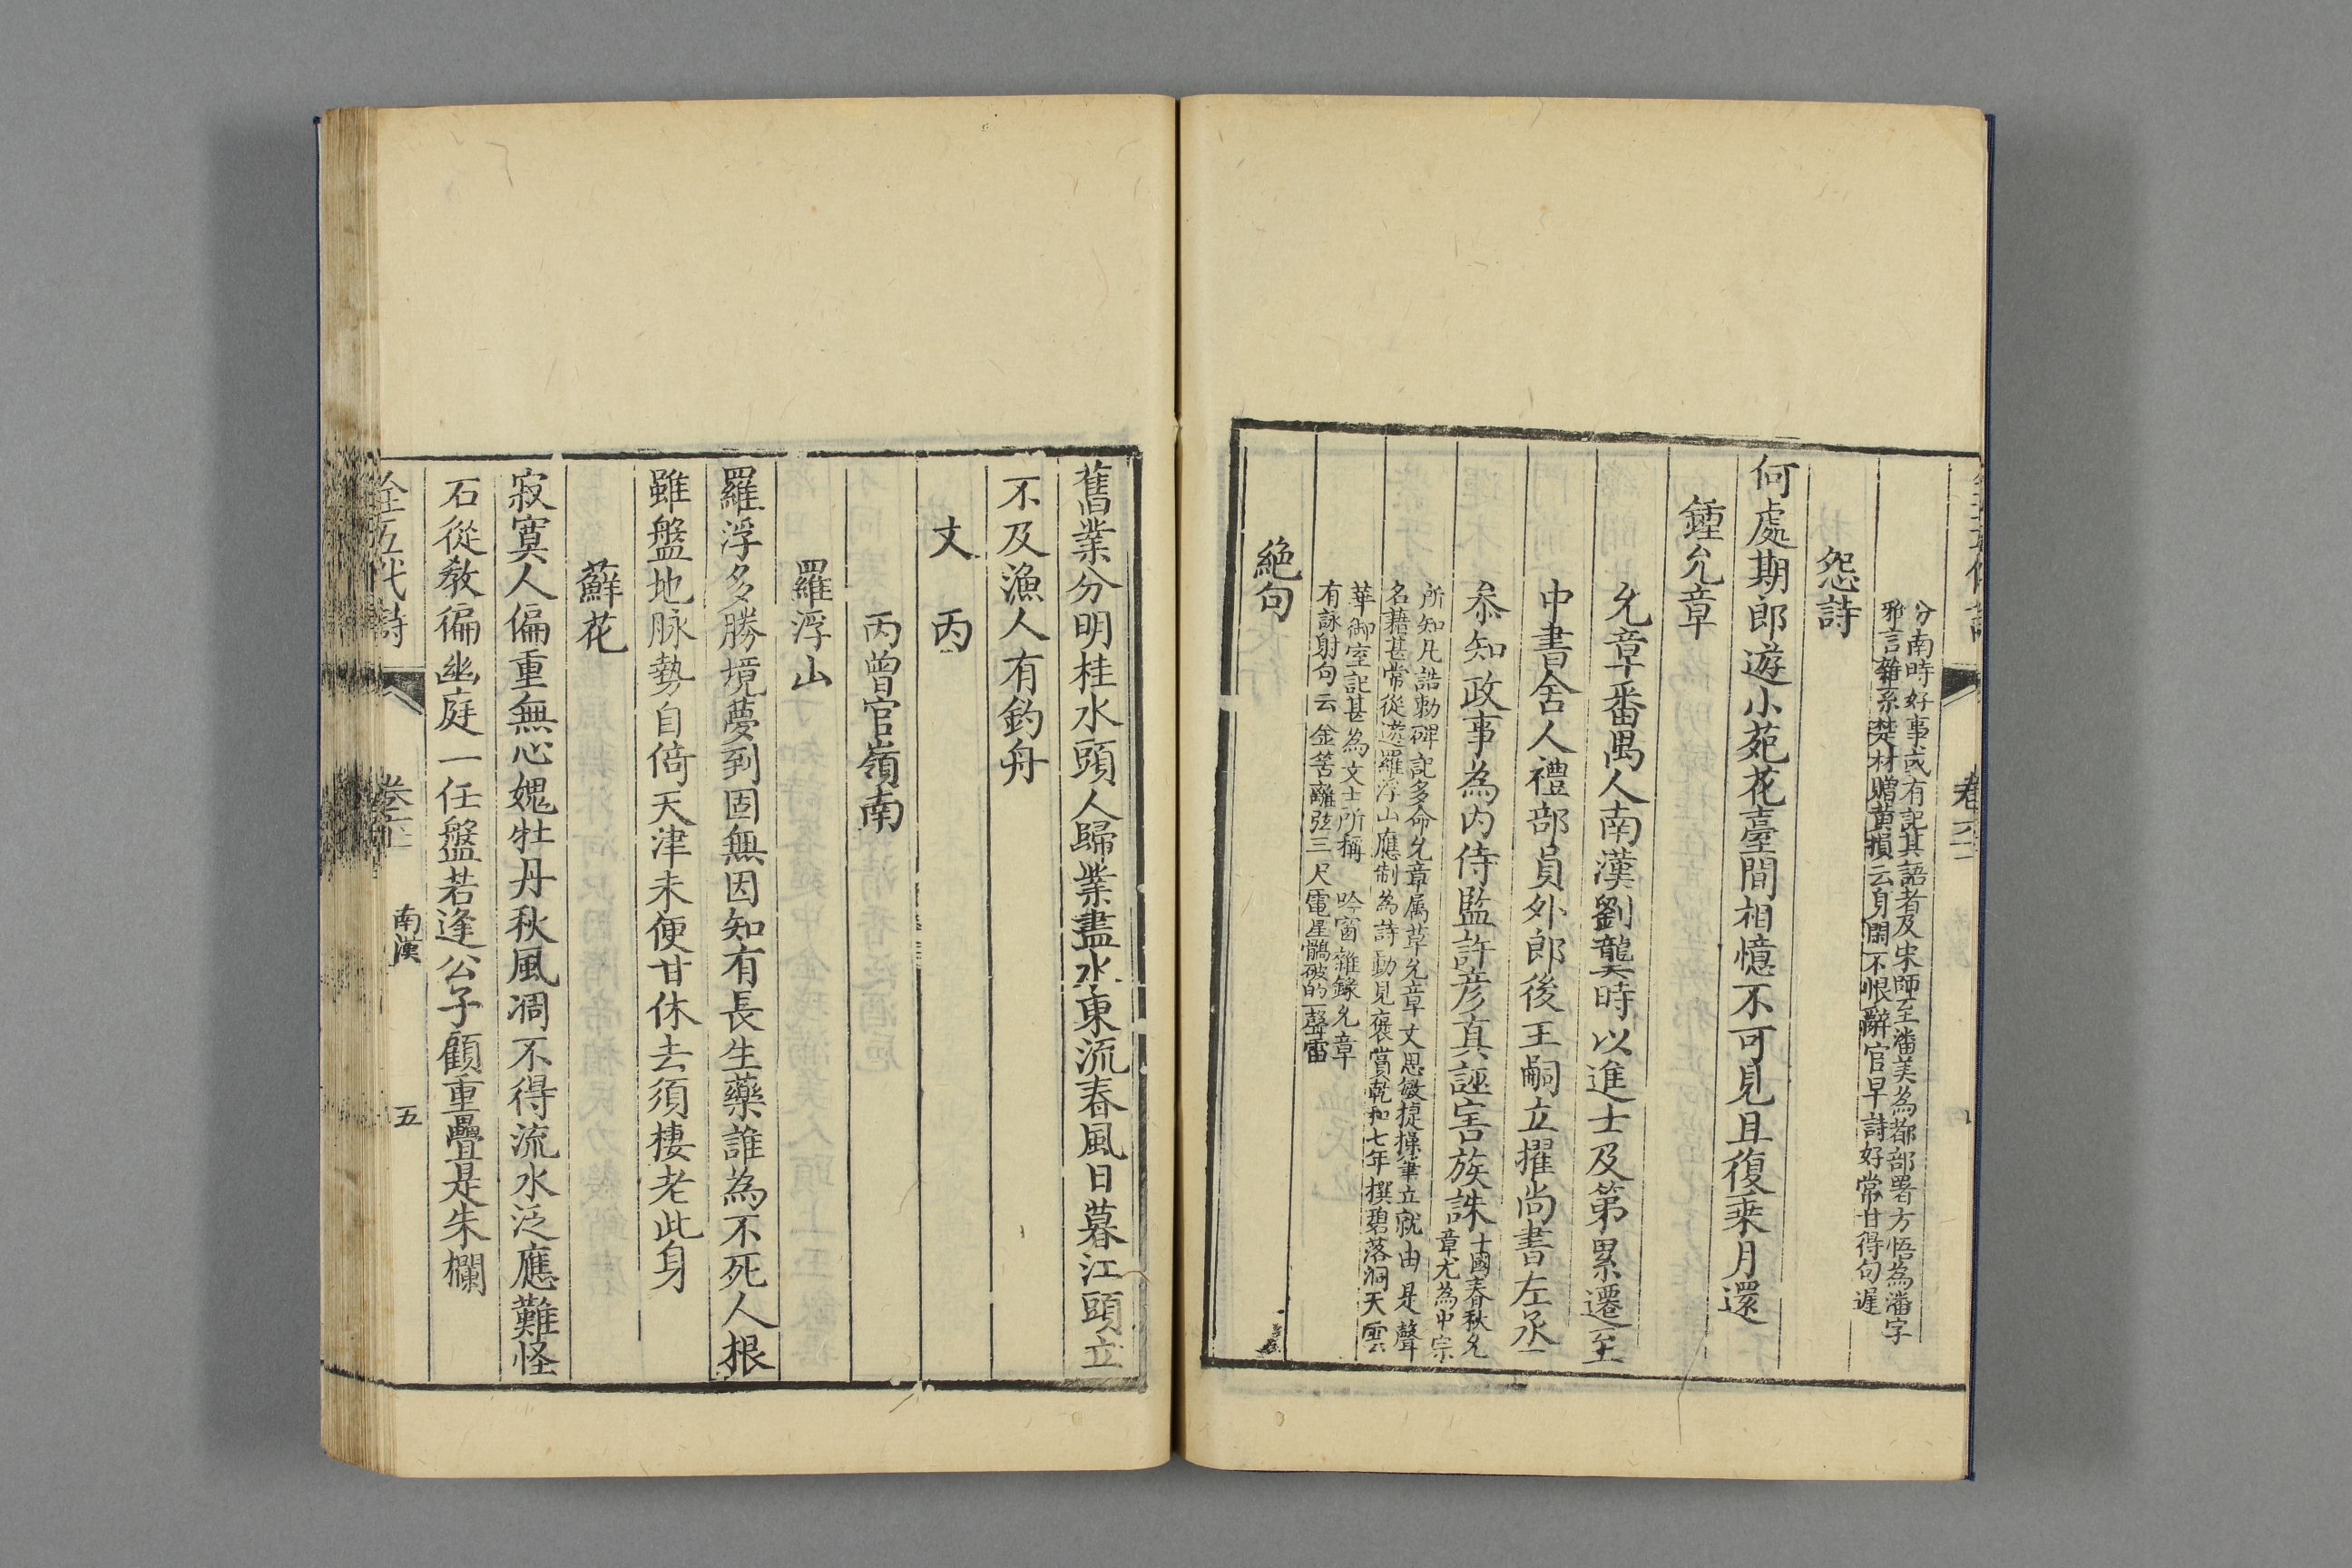 分南時好事或有記其語者及宋師至潘美為都部署方悟為潘字
雅言雜系楚材贈黃損云身閒不恨辭官早詩好常甘得句遲
怨詩
何處期郎遊小苑花臺間相憶不可見且復乗月還
鍾允章
允章番禺人南漢劉龑時以進士及第累遷至
中書舍人禮部員外郎後王嗣立擢尚書左丞
叅知政事為内侍監許彦真誣害族誅
十國春秋允
章尤為中宗
所知凡誥勅碑記多命允章属草允章文思敏捷操筆立就由是聲
名藉甚常從遊羅浮山應制為詩動見褒賞乾和七年撰碧落洞天雲
華御室記甚為文士所稱 吟窗雜錄允章
有詠射句云 金筈離弦三尺電星髇破的一聲雷
絕句
舊業分明桂水頭人歸業盡水東流春風日暮江頭立
不及漁人有釣舟
文 丙
丙曾官嶺南
羅浮山
羅浮多勝境夢到固無因知有長生藥誰為不死人根
雖盤地脉勢自倚天津未便甘休去須棲老此身
蘚花
寂寞人偏重無心媿牡丹秋風凋不得流水泛應難怪
石從教徧幽庭一任盤若逢公子顧重疊是朱欄
全五代詩
南漢
五